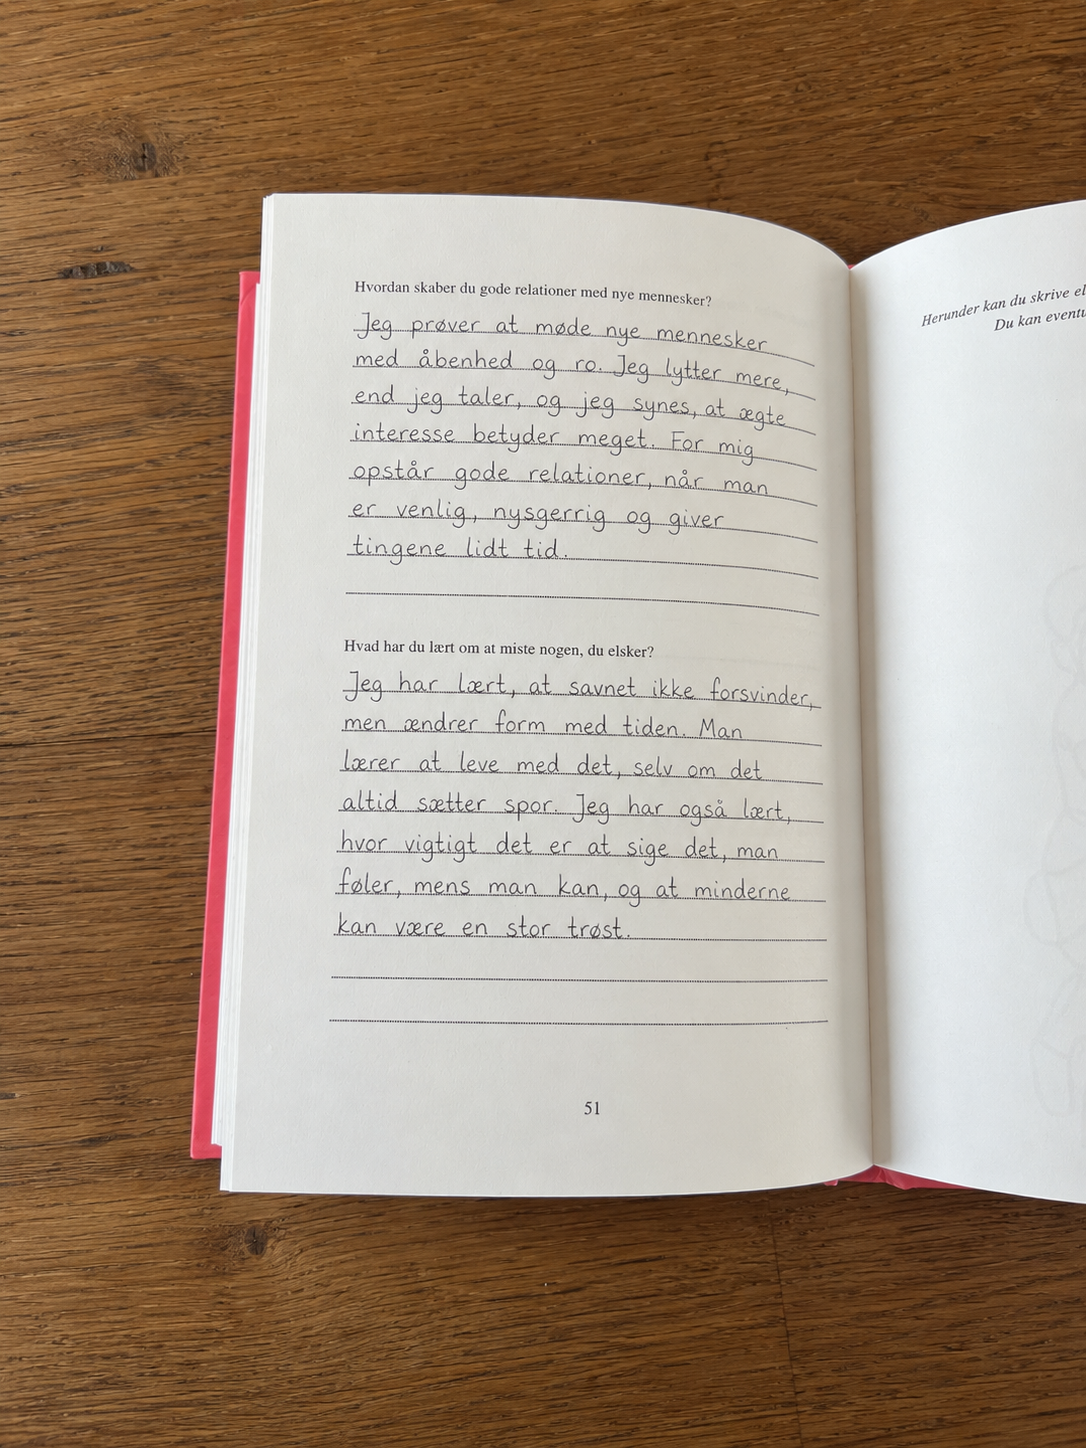 Hvordan skaber du gode relationer med nye mennesker?
Jeg prøver at møde nye mennesker
med åbenhed og ro. Jeg lytter mere,
end jeg taler, og jeg synes, at ægte
interesse betyder meget. For mig
opstår gode relationer, når man
er venlig, nysgerrig og giver
tingene lidt tid.
Hvad har du lært om at miste nogen, du elsker?
Jeg har lært, at savnet ikke forsvinder,
men ændrer form med tiden. Man
lærer at leve med det, selv om det
altid sætter spor. Jeg har også lært,
hvor vigtigt det er at sige det, man
føler, mens man kan, og at minderne
kan være en stor trøst.
51
Herunder kan du skrive
Du kan